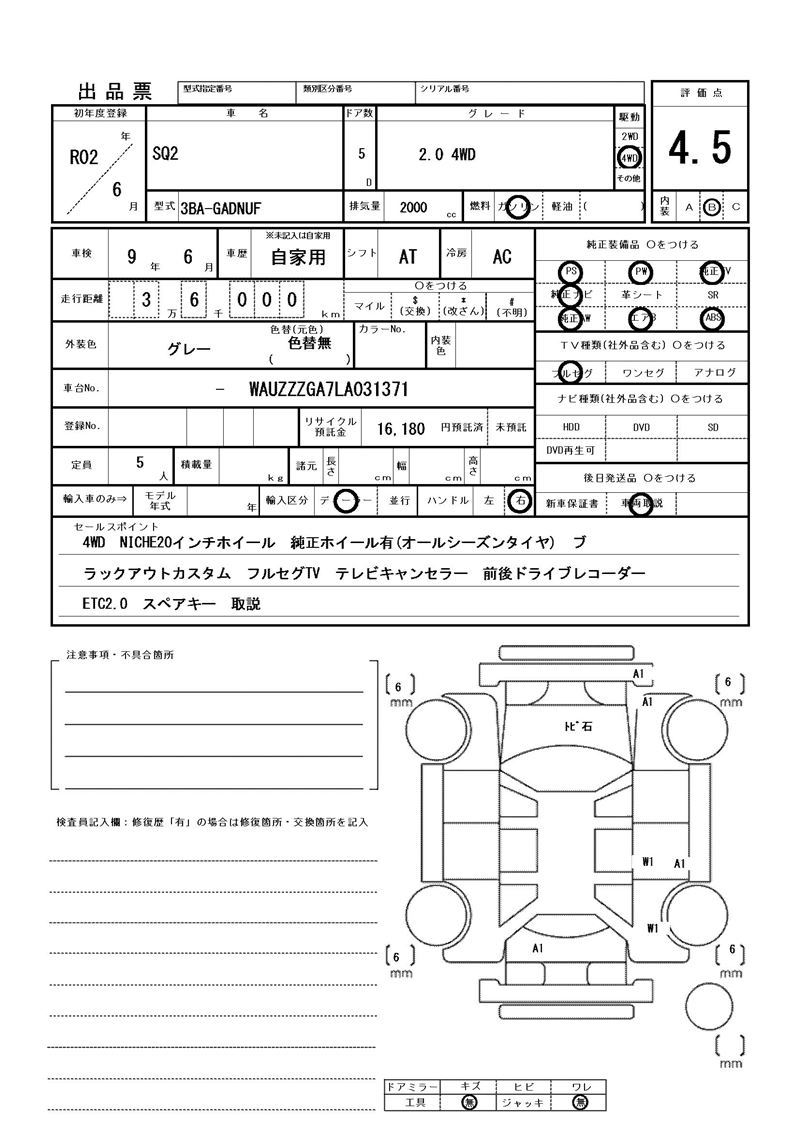 出品票 型式指定番号 類別区分番号 シリアル番号
評価点
4.5
内装 A B C
初年度登録 車名 ドア数 グレード 駆動
R02 年 6 月
SQ2 5 D 2.0 4WD
2WD
4WD
その他
型式 3BA-GADNUF 排気量 2000 cc 燃料 ガソリン 軽油 ( )
車検 9 年 6 月 車歴 ※未記入は自家用 自家用 シフト AT 冷房 AC
走行距離 3 万 6 千 000 km
〇をつける
マイル $(交換) *(改ざん) #(不明)
外装色 グレー 色替(元色) 色替無 ( ) カラーNo. 内装色
車台No. - WAUZZZGA7LA031371
登録No. リサイクル預託金 16,180 円預託済 未預託
定員 5 人 積載量 kg 諸元 長さ cm 幅 cm 高さ cm
輸入車のみ⇒ モデル年式 年 輸入区分 ディーラー 並行 ハンドル 左 右
純正装備品 〇をつける
PS PW 純正TV
純正ナビ 革シート SR
純正AW エアB ABS
TV種類(社外品含む) 〇をつける
フルセグ ワンセグ アナログ
ナビ種類(社外品含む) 〇をつける
HDD DVD SD
DVD再生可
後日発送品 〇をつける
新車保証書 車両取説
セールスポイント
4WD NICHE20インチホイール 純正ホイール有(オールシーズンタイヤ) ブ
ラックアウトカスタム フルセグTV テレビキャンセラー 前後ドライブレコーダー
ETC2.0 スペアキー 取説
注意事項・不具合箇所
検査員記入欄：修復歴「有」の場合は修復箇所・交換箇所を記入
A1
6 mm
A1
6 mm
ﾄﾋﾞ石
W1 A1
W1
A1
6 mm
6 mm
mm
ドアミラー キズ ヒビ ワレ
工具 無 ジャッキ 無